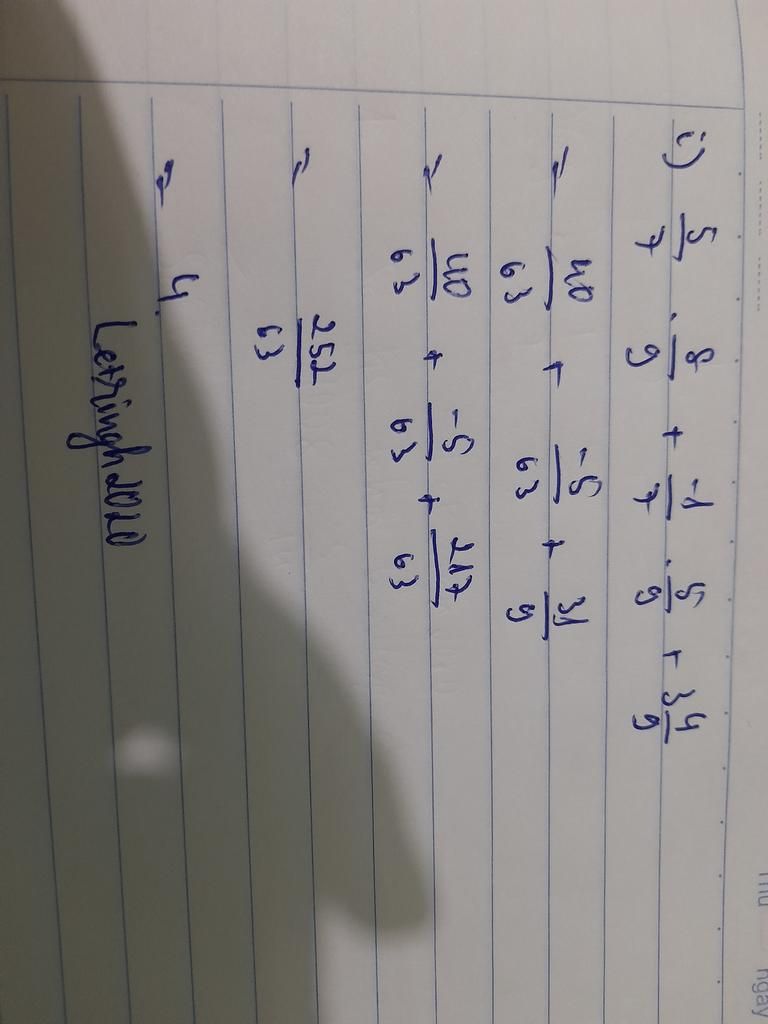 i) 5/7 . 8/9 + -1/7 . 5/9 + 3 4/9
= 40/63 + -5/63 + 31/9
= 40/63 + -5/63 + 217/63
= 252/63
= 4.
Letringh2020
Thứ
ngày